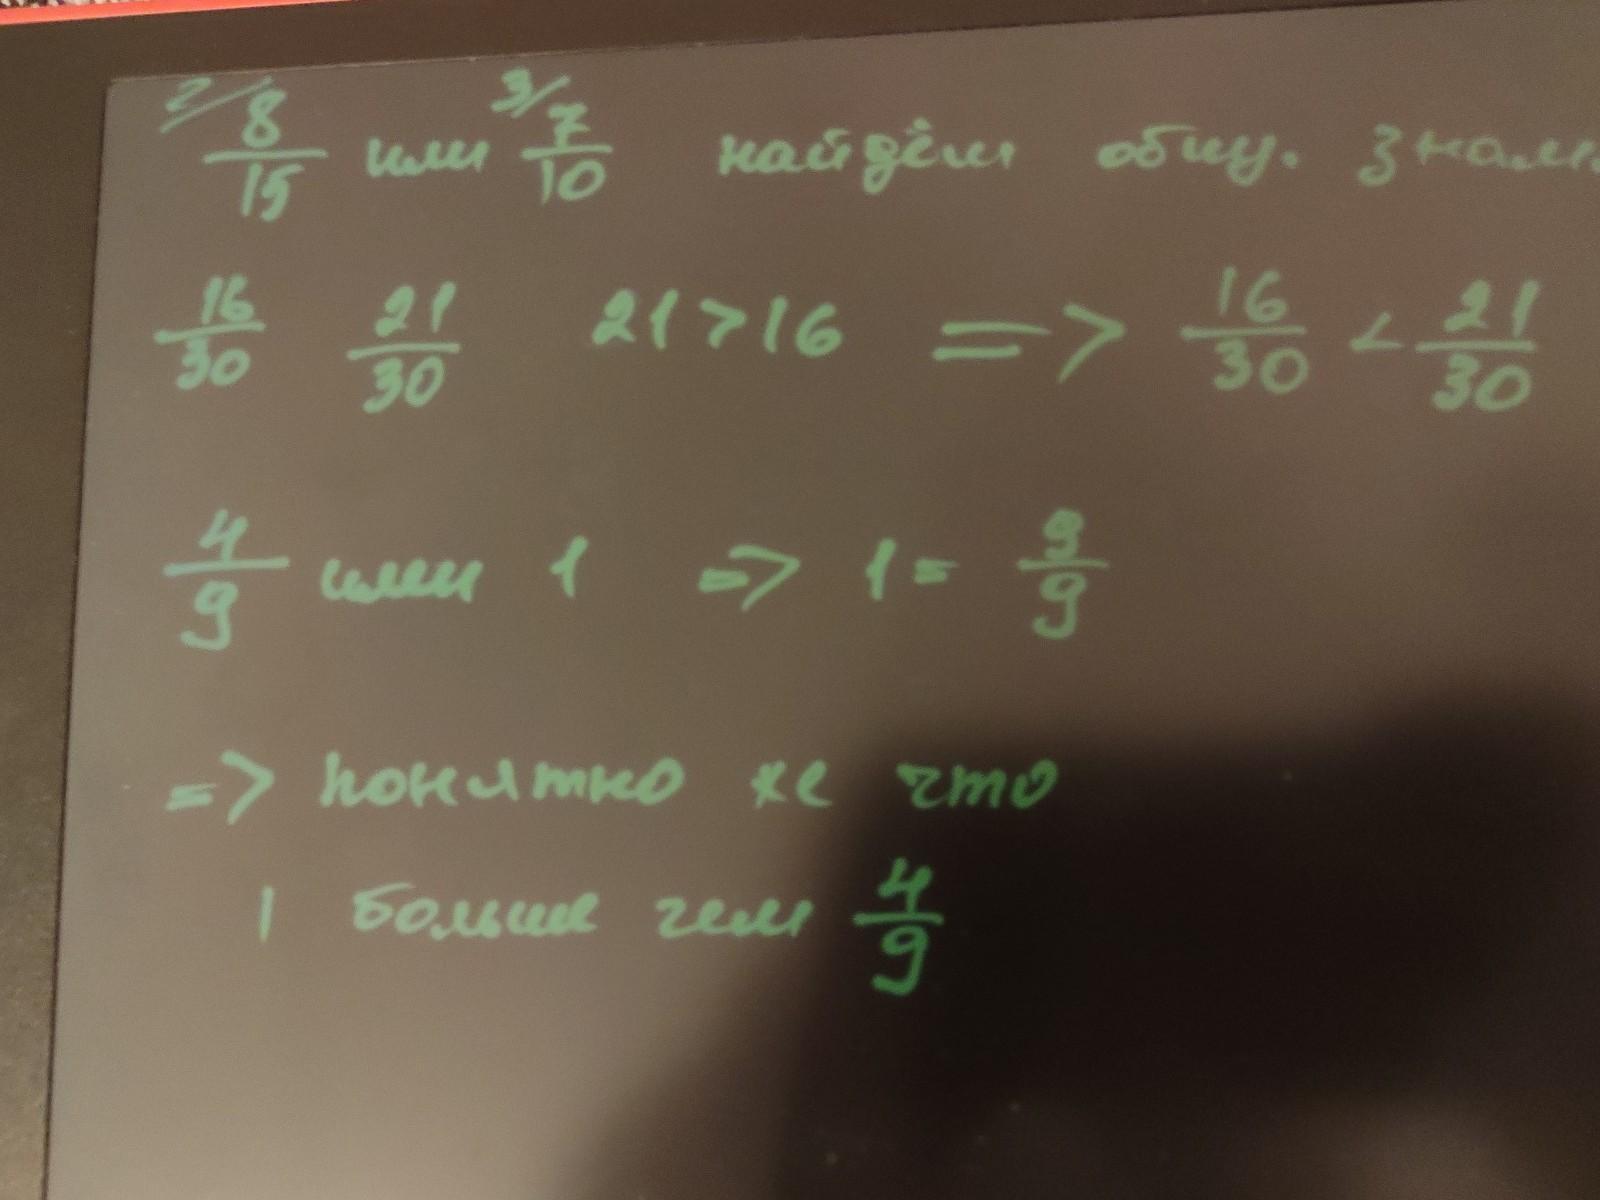 2/ 8/15 или 3/ 7/10 найдём общ. знам.
16/30 21/30 21 > 16 => 16/30 < 21/30
4/9 или 1 => 1 = 9/9
=> понятно же что
1 больше чем 4/9